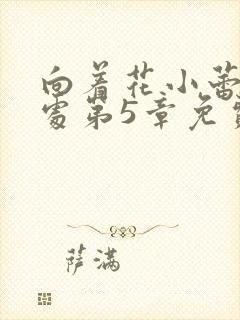 向着花小蕾
处第5章免费
萨满